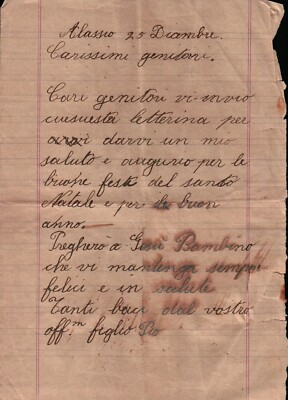 Alassio 25 Dicambre.
Carissimi genitori.
Cari genitori vi invio
cuesuesta letterina per
darvi un mio
saluto e augurio per le
buone feste del santo
Natale e per buon
anno.
Pregherò a Gesù Bambino
che vi mantenga sempre
felici e in salute
Tanti baci dal vostro
aff.m figlio Pio